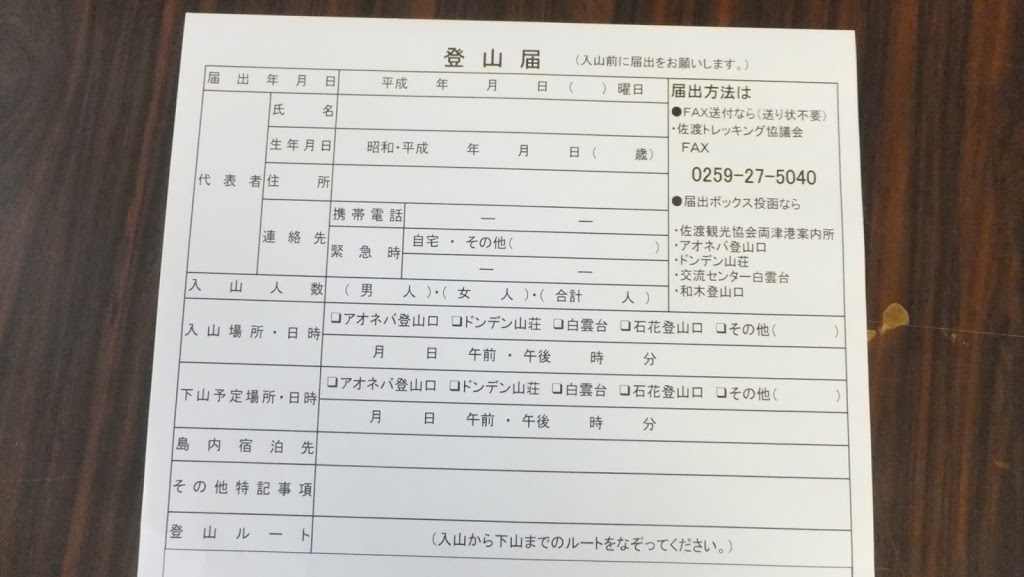 登山届 (入山前に届出をお願いします。)
届出年月日 平成 年 月 日 ( ) 曜日
代表者
氏名
生年月日 昭和・平成 年 月 日 ( 歳)
住所
連絡先
携帯電話 ― ―
緊急時 自宅・その他( )
― ―
入山人数 (男 人)・(女 人)・(合計 人)
入山場所・日時 □アオネバ登山口 □ドンデン山荘 □白雲台 □石花登山口 □その他( )
月 日 午前・午後 時 分
下山予定場所・日時 □アオネバ登山口 □ドンデン山荘 □白雲台 □石花登山口 □その他( )
月 日 午前・午後 時 分
島内宿泊先
その他特記事項
登山ルート (入山から下山までのルートをなぞってください。)
届出方法は
●FAX送付なら(送り状不要)
・佐渡トレッキング協議会
FAX
0259-27-5040
●届出ボックス投函なら
・佐渡観光協会両津港案内所
・アオネバ登山口
・ドンデン山荘
・交流センター白雲台
・和木登山口